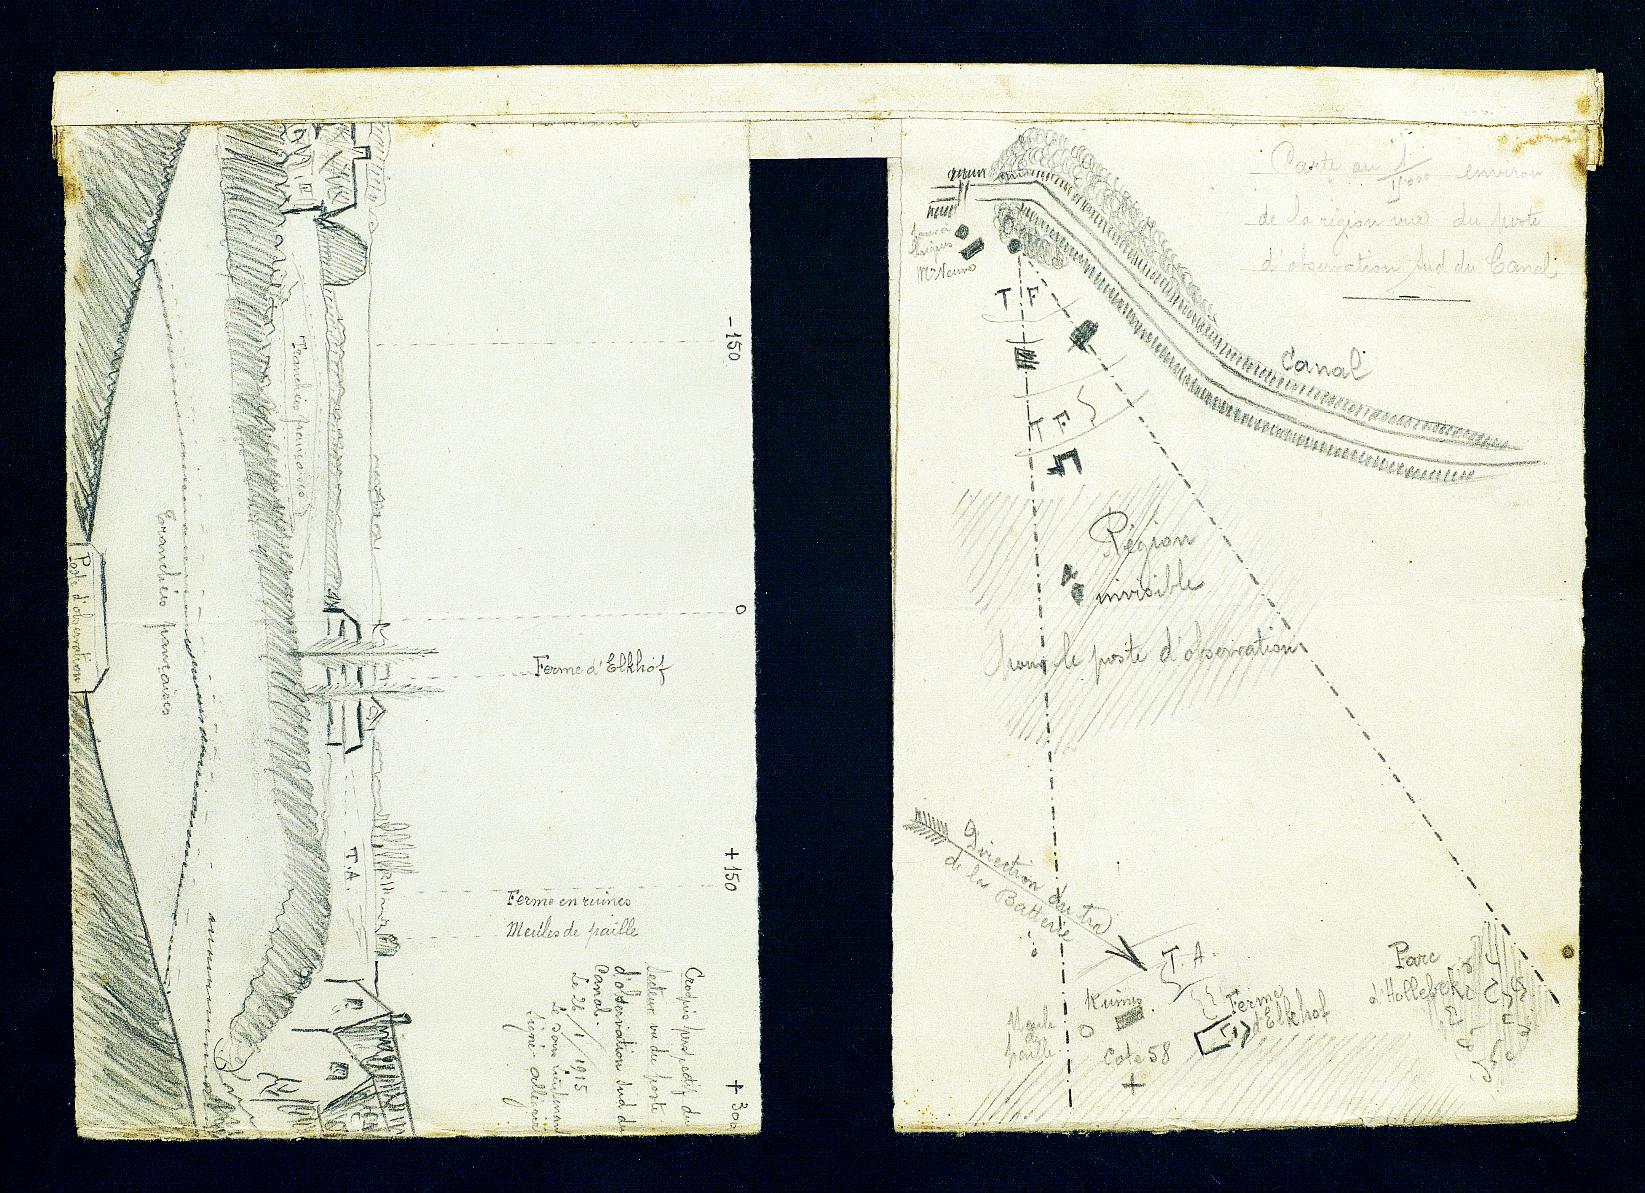 - 150
0
+ 150
+ 300
Tranchées françaises
Tranchées françaises
Poste d'observation
Ferme d'Elkhof
T.A.
Ferme en ruines
Meules de paille
Croquis perspectif du
secteur vu du poste
d'observation Sud du
Canal.
Le 26/1/1915
Le Sous Lieutenant
Signé
Carte au 1/ environ
de la région vue du poste
d'observation Sud du Canal
T F
Canal
T F
Région
invisible
pour le poste d'observation
Direction du tir
de la Batterie
T. A.
Parc
d'Hollebeke
Ruines
Ferme
d'Elkhof
Meule
paille
Cote 58
+